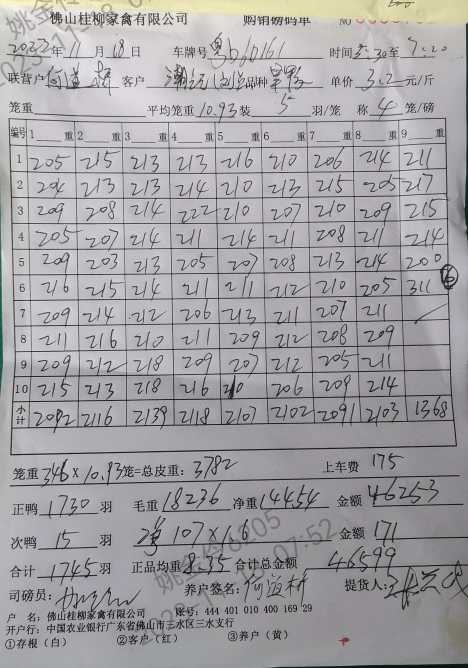 佛山桂柳家禽有限公司 购销磅码单 №
2023年11月18日 车牌号 粤 时间 3:30至7:20
联营户 何道 客户 品种 单价 3.2 元/斤
笼重 平均笼重 10.93 装 5 羽/笼 称 4 笼/磅
编号 1 重 2 重 3 重 4 重 5 重 6 重 7 重 8 重 9 重
1 205 215 213 213 216 210 206 214 211
2 204 213 213 214 210 213 215 205 217
3 209 208 214 222 210 207 210 209 215
4 205 207 214 211 214 211 208 211 214
5 209 203 213 205 207 208 213 214 200
6 216 215 214 211 211 212 210 205 311
7 209 214 212 206 213 211 207 211
8 211 216 210 211 209 212 208 209
9 209 212 218 209 207 212 205 211
10 215 213 218 216 210 206 209 214
小计 2092 2116 2139 2118 2107 2102 2091 2103 1368
笼重 346 X 10.93 笼=总皮重: 3782 上车费 175
正鸭 1730 羽 毛重 18236 净重 14454 金额 46253
次鸭 15 羽 107×1.6 金额 171
合计 1745 羽 正品均重 8.35 合计总金额 46599
司磅员: 养户签名: 提货人:
户 名: 佛山桂柳家禽有限公司 账号: 444 401 010 400 169 29
开户行: 中国农业银行广东省佛山市三水区三水支行
①存根（白） ②客户（红） ③养户（黄）